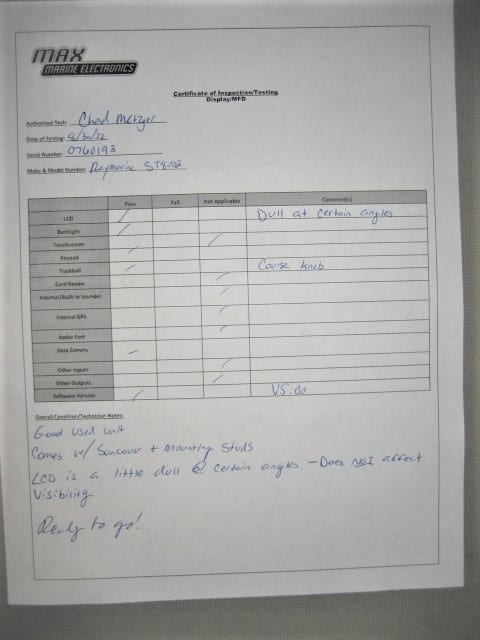 MAX
MARINE ELECTRONICS
Certificate of Inspection/Testing
Display/MFD
Authorized Tech: Chad Metzger
Date of Testing: 8/30/22
Serial Number: 0760193
Make & Model Number: Raymarine ST8002
Pass Fail Not Applicable Comment(s)
LCD / Dull at certain angles
Backlight /
Touchscreen /
Keypad /
Trackball / Course knob
Card Reader /
Internal/Built-in Sounder /
Internal GPS /
Radar Port /
Data Comms /
Other Inputs /
Other Outputs /
Software Version / V5.00
Overall Condition/Technician Notes:
Good used unit
Comes w/ Suncover + mounting studs
LCD is a little dull @ certain angles. - Does NOT affect
Visibility
Ready to go!